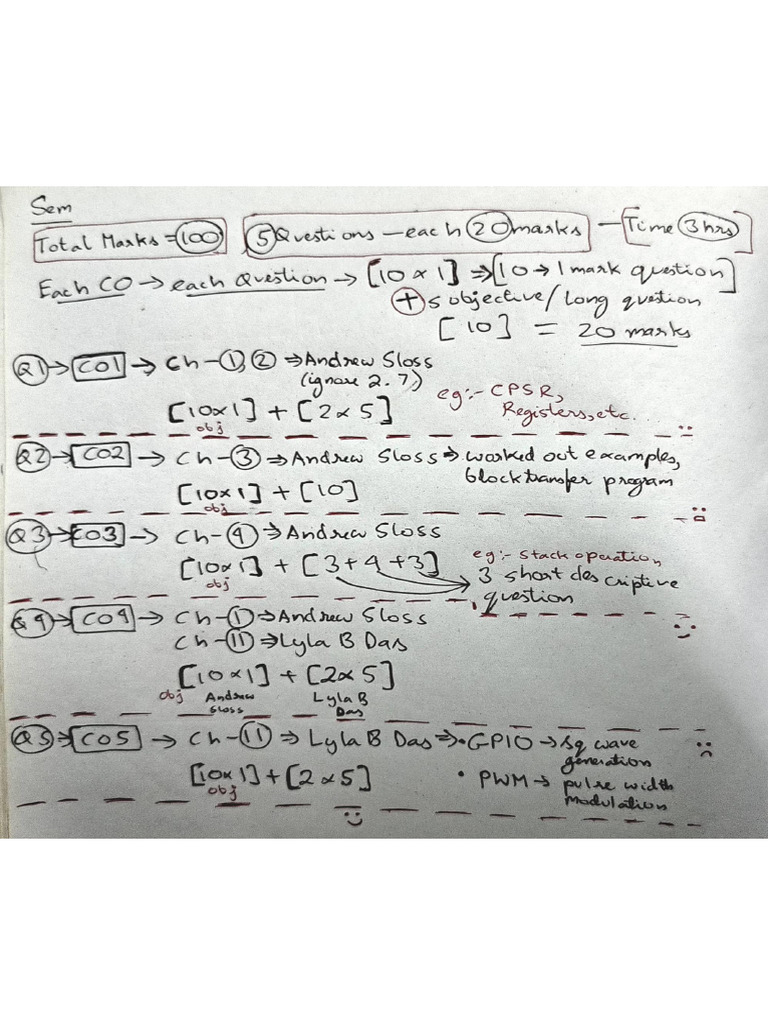 Sem
Total Marks = 100 5 Questions — each 20 marks — Time 3 hrs
Each CO → each Question → [10 × 1] ⇒ [10 → 1 mark question]
+ 5 objective / long question
[10] = 20 marks
Q1 → CO1 → Ch - 1, 2 ⇒ Andrew Sloss
(ignore 2.7)
[10×1] + [2×5] eg:- CPSR,
obj Registers, etc...
Q2 → CO2 → Ch - 3 ⇒ Andrew Sloss ⇒ worked out examples,
block transfer program
[10×1] + [10]
obj
Q3 → CO3 → Ch - 4 ⇒ Andrew Sloss
[10×1] + [3+4+3] eg:- stack operation,
obj 3 short descriptive
question
Q4 → CO4 → Ch - 1 ⇒ Andrew Sloss
Ch - 11 ⇒ Lyla B Das
[10×1] + [2×5]
obj Andrew Sloss Lyla B Das
Q5 → CO5 → Ch - 11 ⇒ Lyla B Das ⇒ • GPIO → sq wave
generation
[10×1] + [2×5] • PWM → pulse width
obj modulation